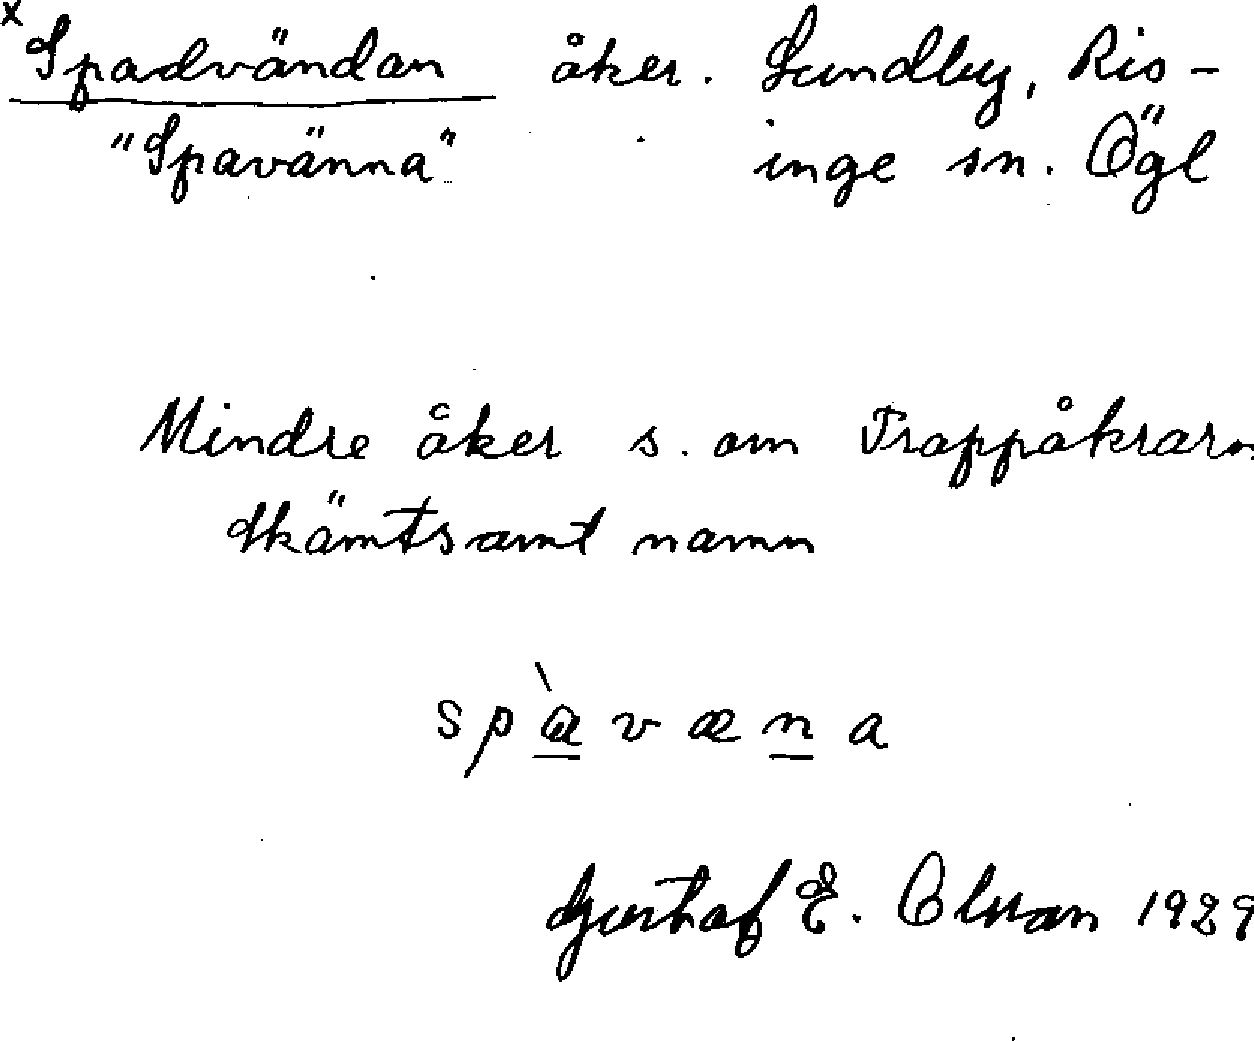 x Spadvändan åker. Lundby, Ris-
"Spavänna" inge sn. Ögl
Mindre åker s. om Trappåkrarn
Skämtsamt namn
spàvæna
Gustaf E. Olsson 1929